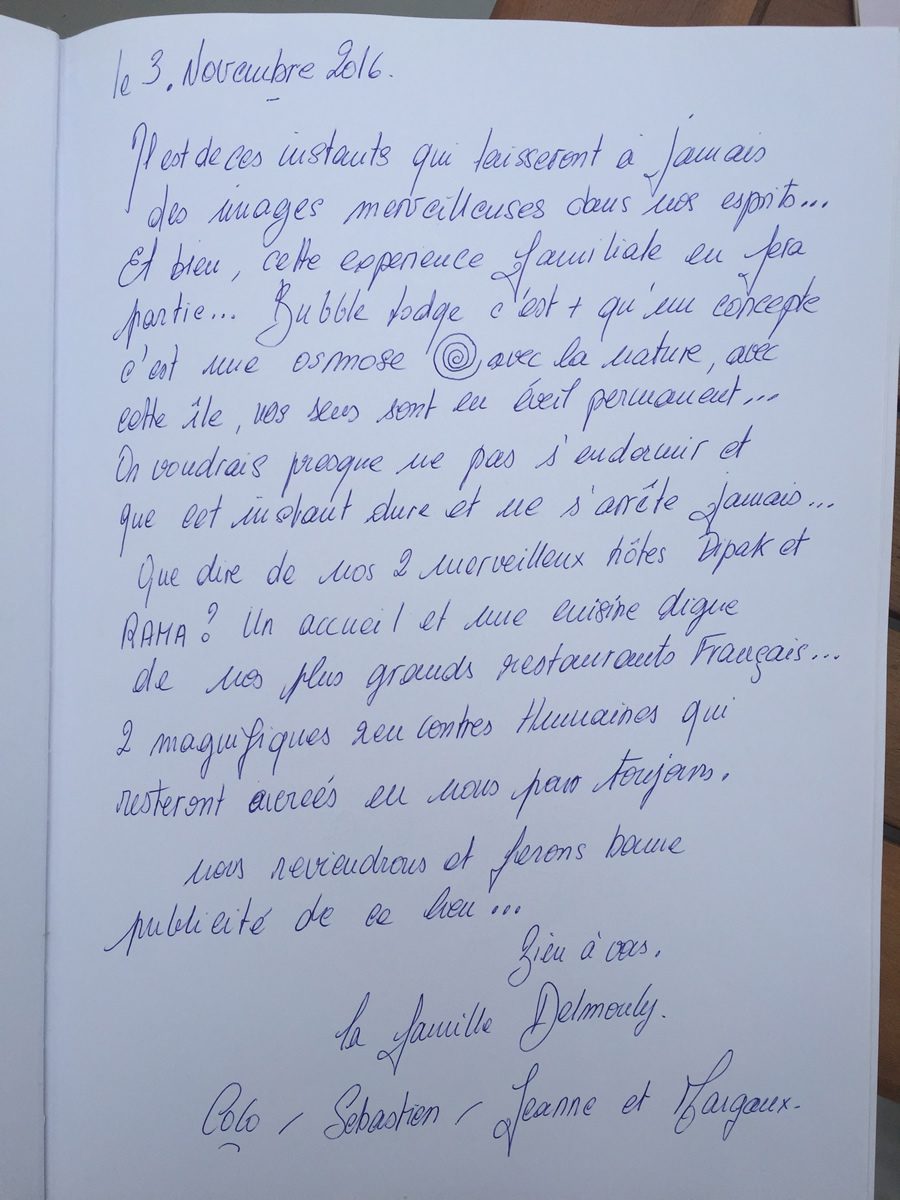 le 3. Novembre 2016.
Il est de ces instants qui laisseront à jamais
des images merveilleuses dans nos esprits...
Et bien, cette experience familiale en fera
partie... Bubble lodge c'est + qu'un concepte
c'est une osmose avec la nature, avec
cette île, nos sens sont en éveil permanent...
On voudrais presque ne pas s'endormir et
que cet instant dure et ne s'arrête jamais...
Que dire de nos 2 merveilleux hôtes Dipak et
RAMA? Un accueil et une cuisine digne
de nos plus grands restaurants Français...
2 magnifiques rencontres Humaines qui
resteront ancrés en nous pour toujours.
nous reviendrons et ferons bonne
publicité de ce lieu...
Bien à vous.
la famille Delmouly.
Coco / Sebastien / Jeanne et Margaux.